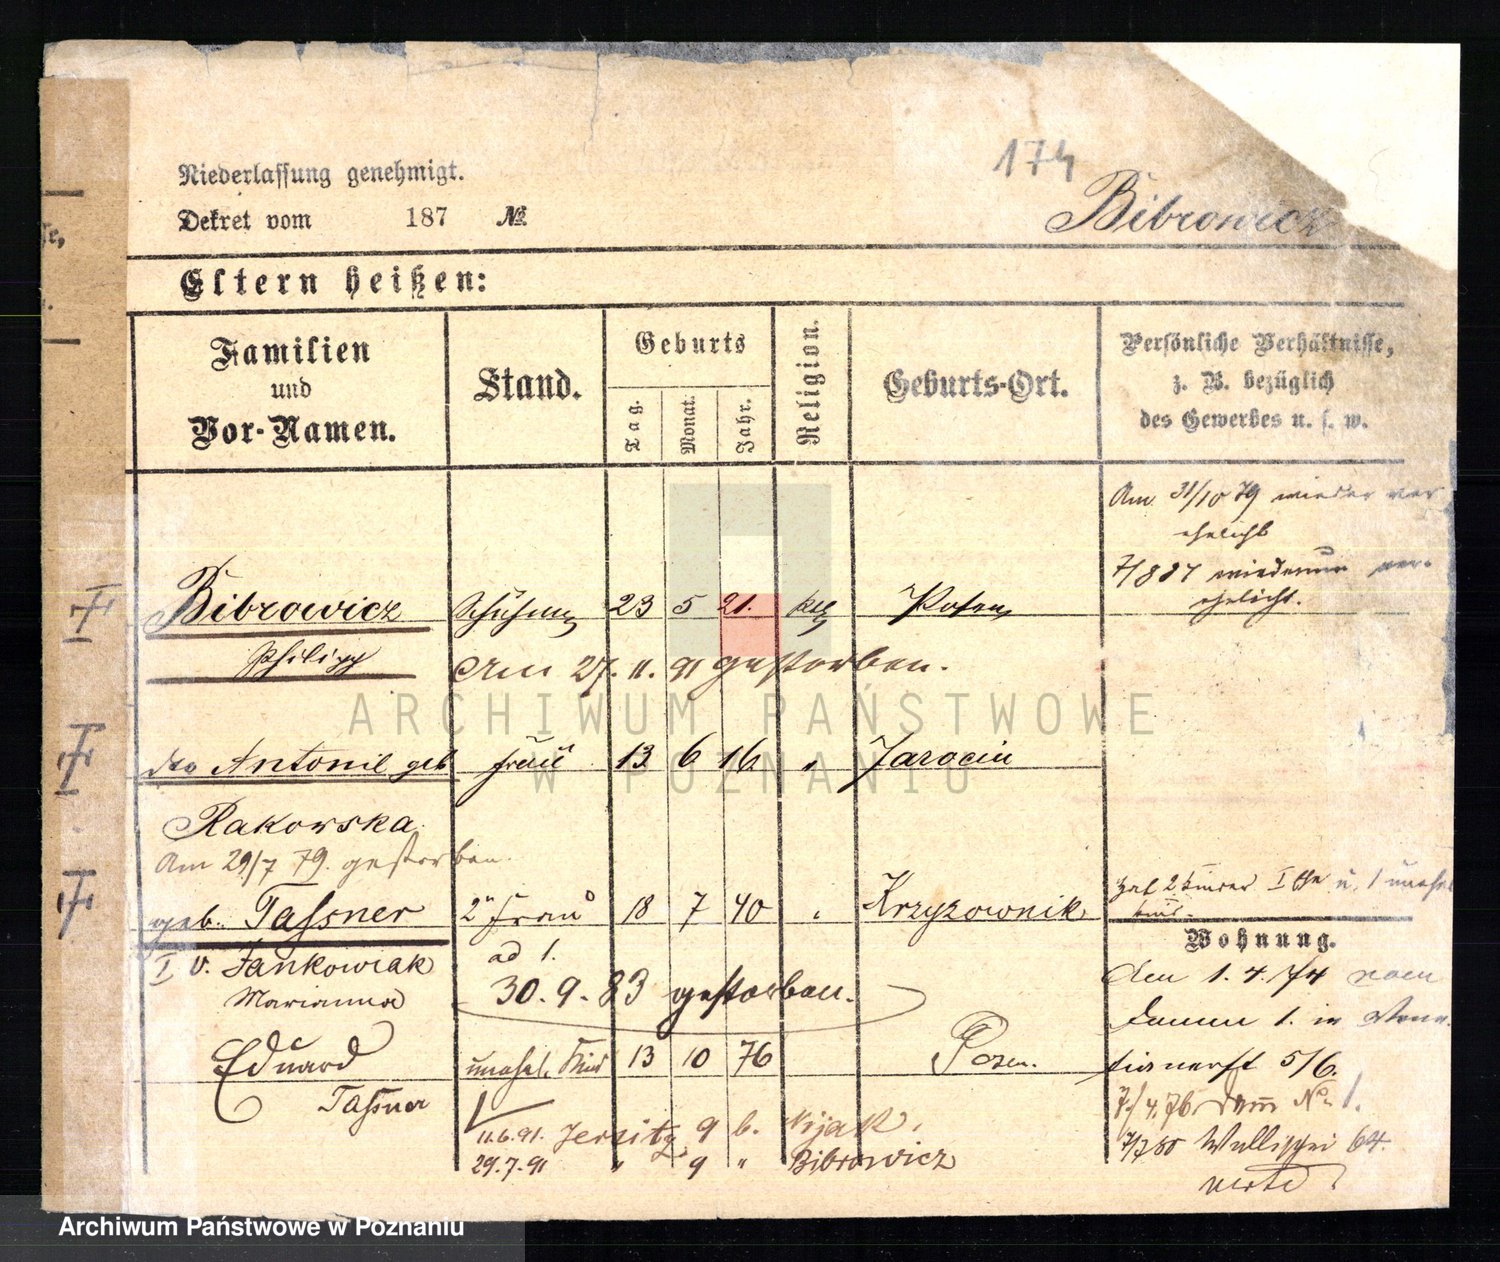 174
Niederlassung genehmigt.
Dekret vom 187 №
Bibrowicz
Eltern heißen:
Familien und Vor-Namen.
Stand.
Geburts
Tag.
Monat.
Jahr.
Religion.
Geburts-Ort.
Persönliche Verhältnisse,
z. B. bezüglich
des Gewerbes u. s. w.
Am 31/10 79 wieder ver
ehelicht
wiederum ver-
ehelicht.
Bibrowicz 23 5 21. kth Posen
Philipp
Am 27. 11. 91 gestorben.
ARCHIWUM PAŃSTWOWE
W POZNANIU
Antonie geb Frau 13 6 16 " Jarocin
Rakowska
Am 29/7 79. gestorben.
geb. Tassner 2te Frau 18 7 40 " Krzyzownik
ad 1.
I v. Jankowiak
Marianna
30. 9. 83 gestorben.
hat 2 Kinder I Ehe u. 1 unehel
Kind.
Wohnung.
Am 1. 4. 74 vom
Damm 1. in
5/6.
7/4. 76. Damm No 1.
7/7 80 Wallischei 64.
verte
Eduard unehel. Kind 13 10 76 Posen.
Tassner
11.6.91. Jersitz 9 b.
29.7.91 " 9 " Bibrowicz
Archiwum Państwowe w Poznaniu